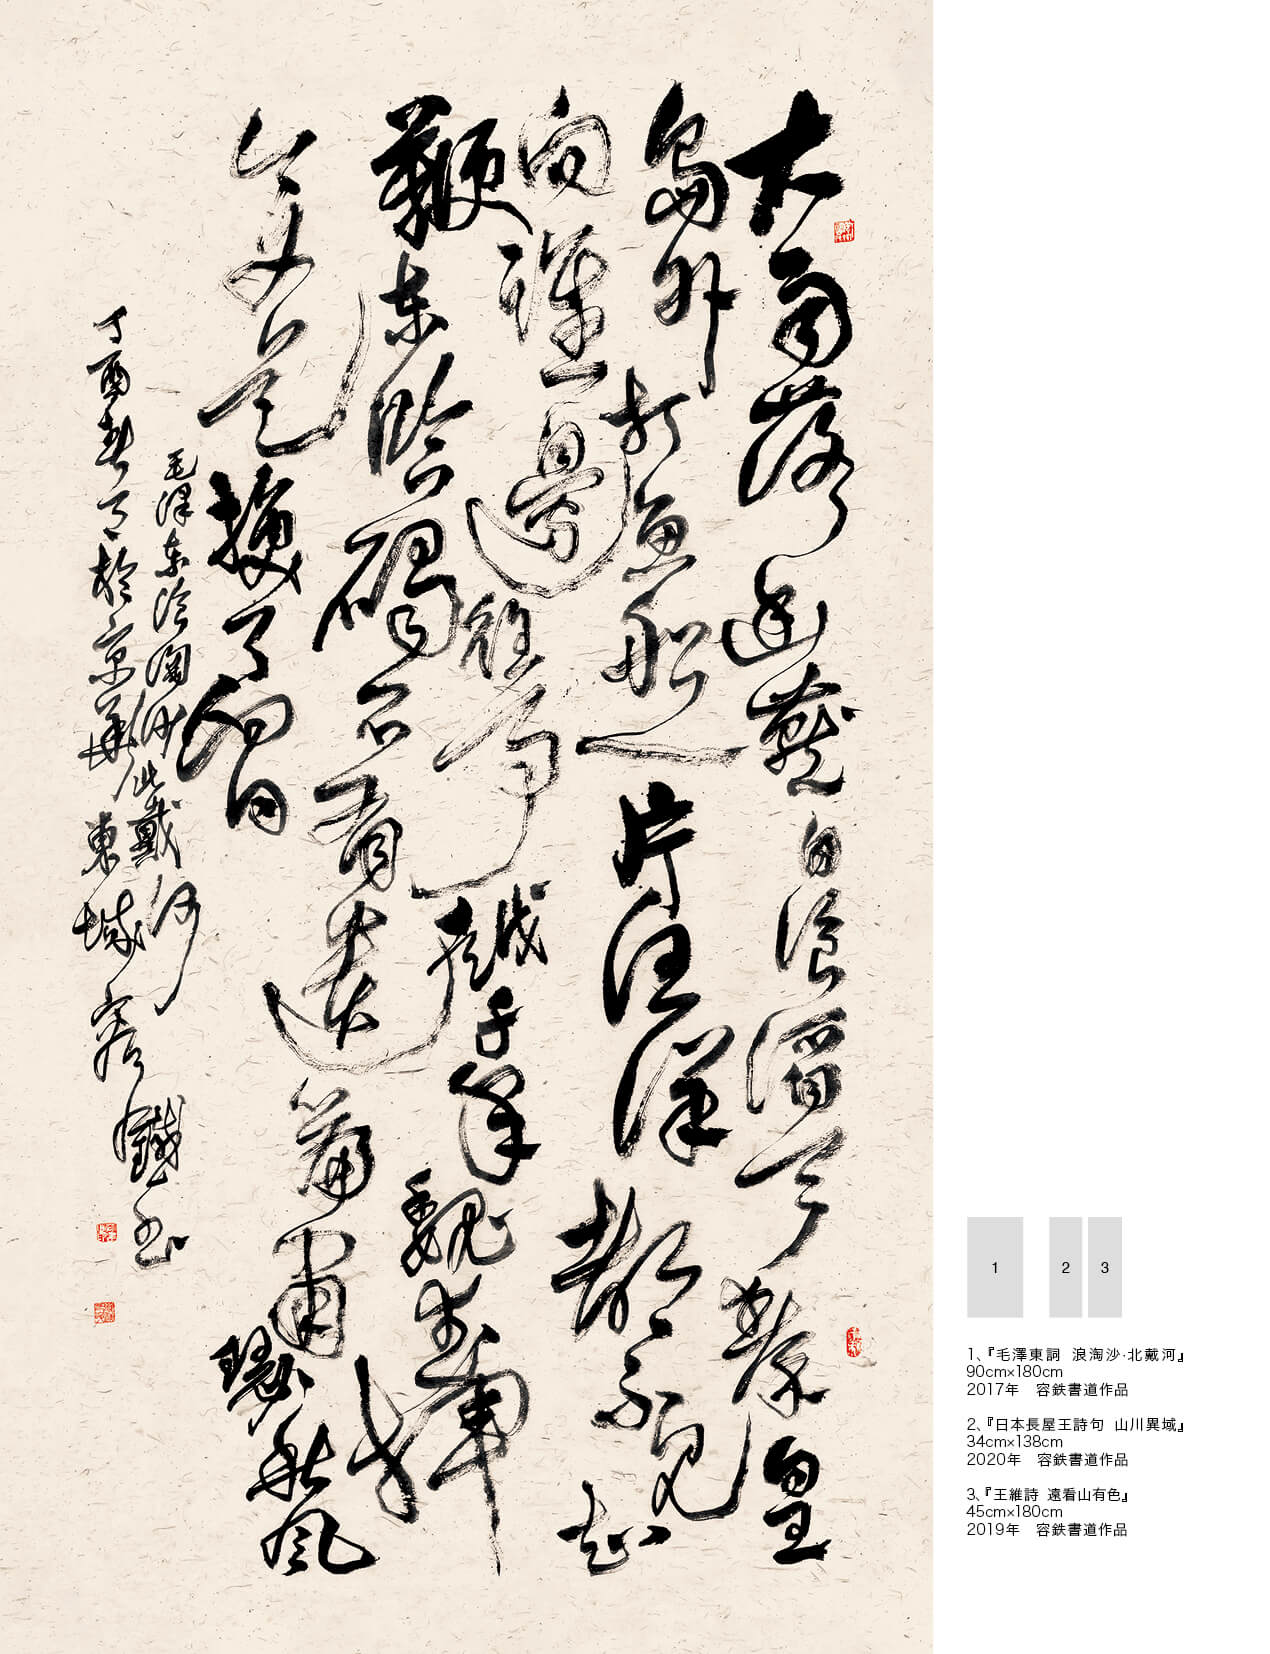 大雨落幽燕白浪滔天秦皇
島外打魚船一片汪洋都不見知
向誰邊往事越千年魏武揮
鞭东臨碣石有遺篇蕭瑟秋风
今又是換了人间
毛澤东浪淘沙北戴河
丁酉春於京華東城容鐵书
1
2
3
1、『毛澤東詞 浪淘沙·北戴河』
90cm×180cm
2017年 容鉄書道作品
2、『日本長屋王詩句 山川異域』
34cm×138cm
2020年 容鉄書道作品
3、『王維詩 遠看山有色』
45cm×180cm
2019年 容鉄書道作品